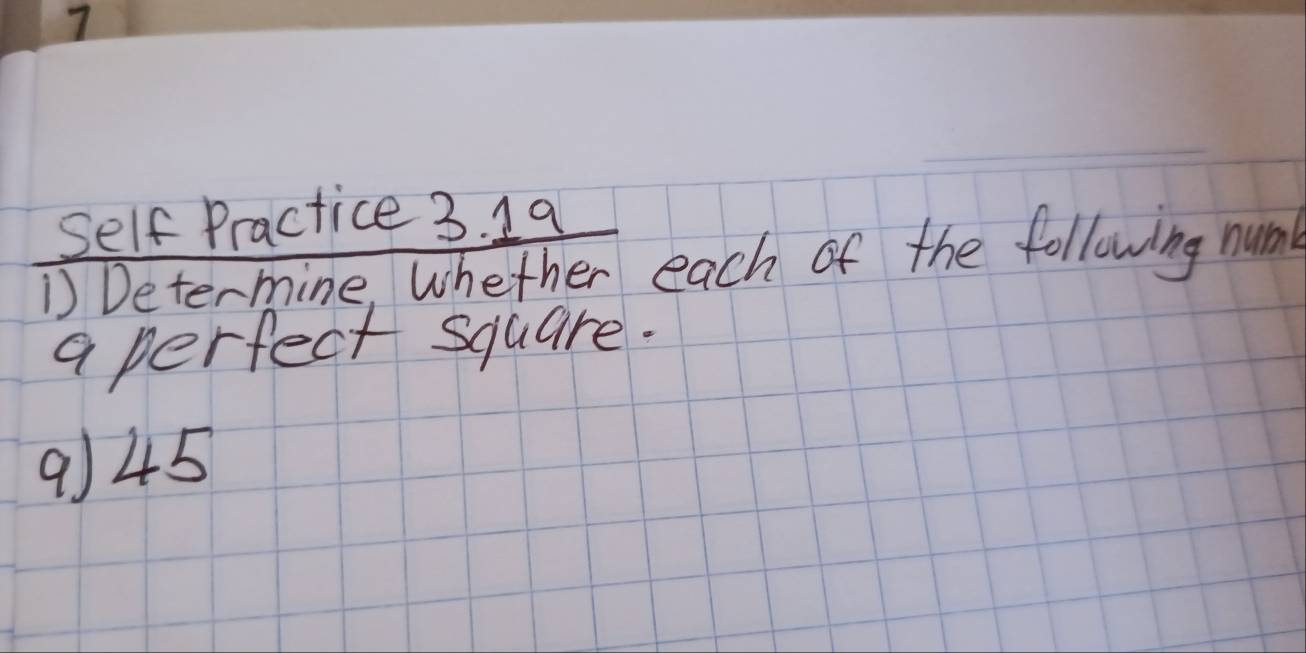 7
Self Practice 3.1a
1) Determine, whether each of the following
a perfect square.
a) 45